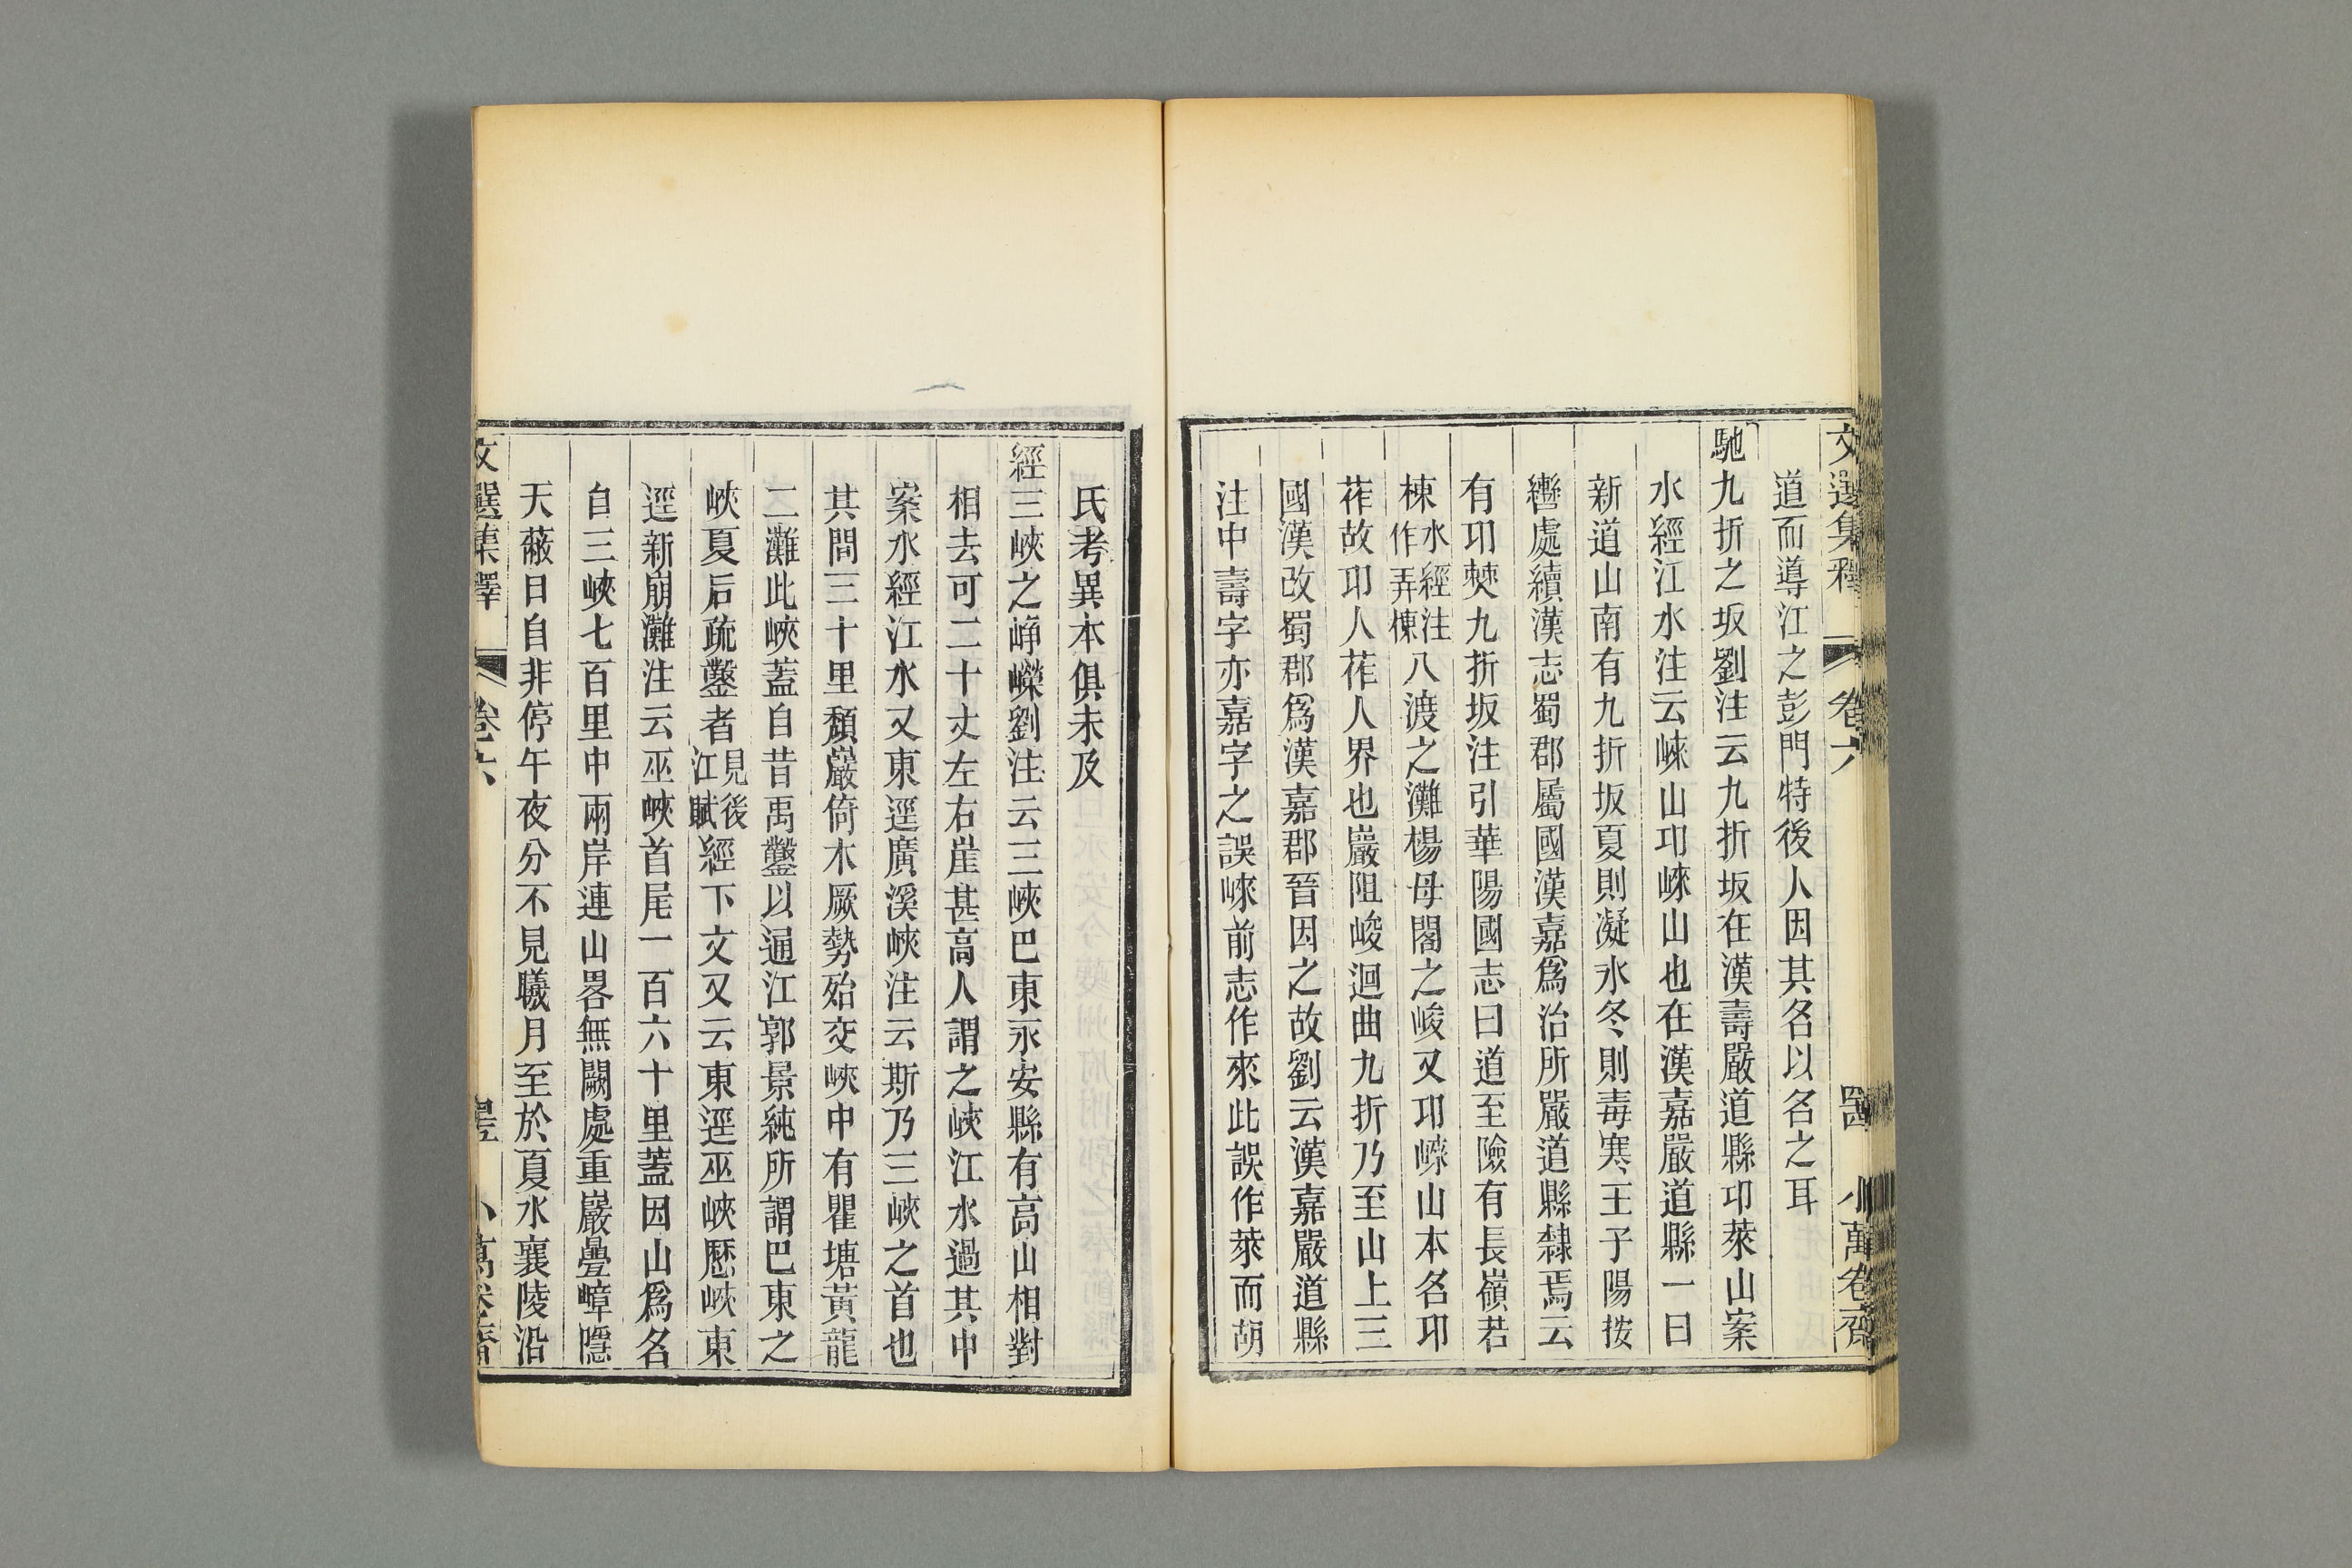 文選集釋 卷六 四 小萬卷齋
道而導江之彭門特後人因其名以名之耳
馳九折之坂劉注云九折坂在漢壽嚴道縣卭萊山案
水經江水注云崍山卭崍山也在漢嘉嚴道縣一曰
新道山南有九折坂夏則凝氷冬則毒寒王子陽按
轡處續漢志蜀郡屬國漢嘉爲治所嚴道縣隸焉云
有卭僰九折坂注引華陽國志曰道至險有長嶺若
棟水經注作弄棟八渡之灘楊母閣之峻又卭崍山本名卭
莋故卭人莋人界也巖阻峻迴曲九折乃至山上三
國漢改蜀郡爲漢嘉郡晉因之故劉云漢嘉嚴道縣
注中壽字亦嘉字之誤崍前志作來此誤作萊而胡
氏考異本俱未及
經三峽之崢嶸劉注云三峽巴東永安縣有高山相對
相去可二十丈左右崖甚高人謂之峽江水過其中
案水經江水又東逕廣溪峽注云斯乃三峽之首也
其間三十里頹巖倚木厥勢殆交峽中有瞿塘黃龍
二灘此峽蓋自昔禹鑿以通江郭景純所謂巴東之
峽夏后疏鑿者見後江賦經下文又云東逕巫峽歷峽東
逕新崩灘注云巫峽首尾一百六十里蓋因山爲名
自三峽七百里中兩岸連山畧無闕處重巖疊嶂隱
天蔽日自非停午夜分不見曦月至於夏水襄陵沿
文選集釋 卷六 小萬卷齋